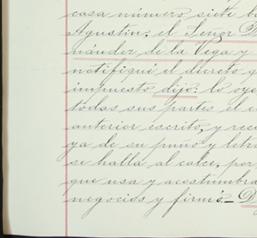 casa número siete
Agustin: el Señor
nández de la Vega y
notifiqué el decreto
impuesto dijo: lo oye
todas sus partes el
anterior escrito, y reco
ya de su puño y letra
se halla al calce, por
que usa y acostumbra
negocios y firmó.—